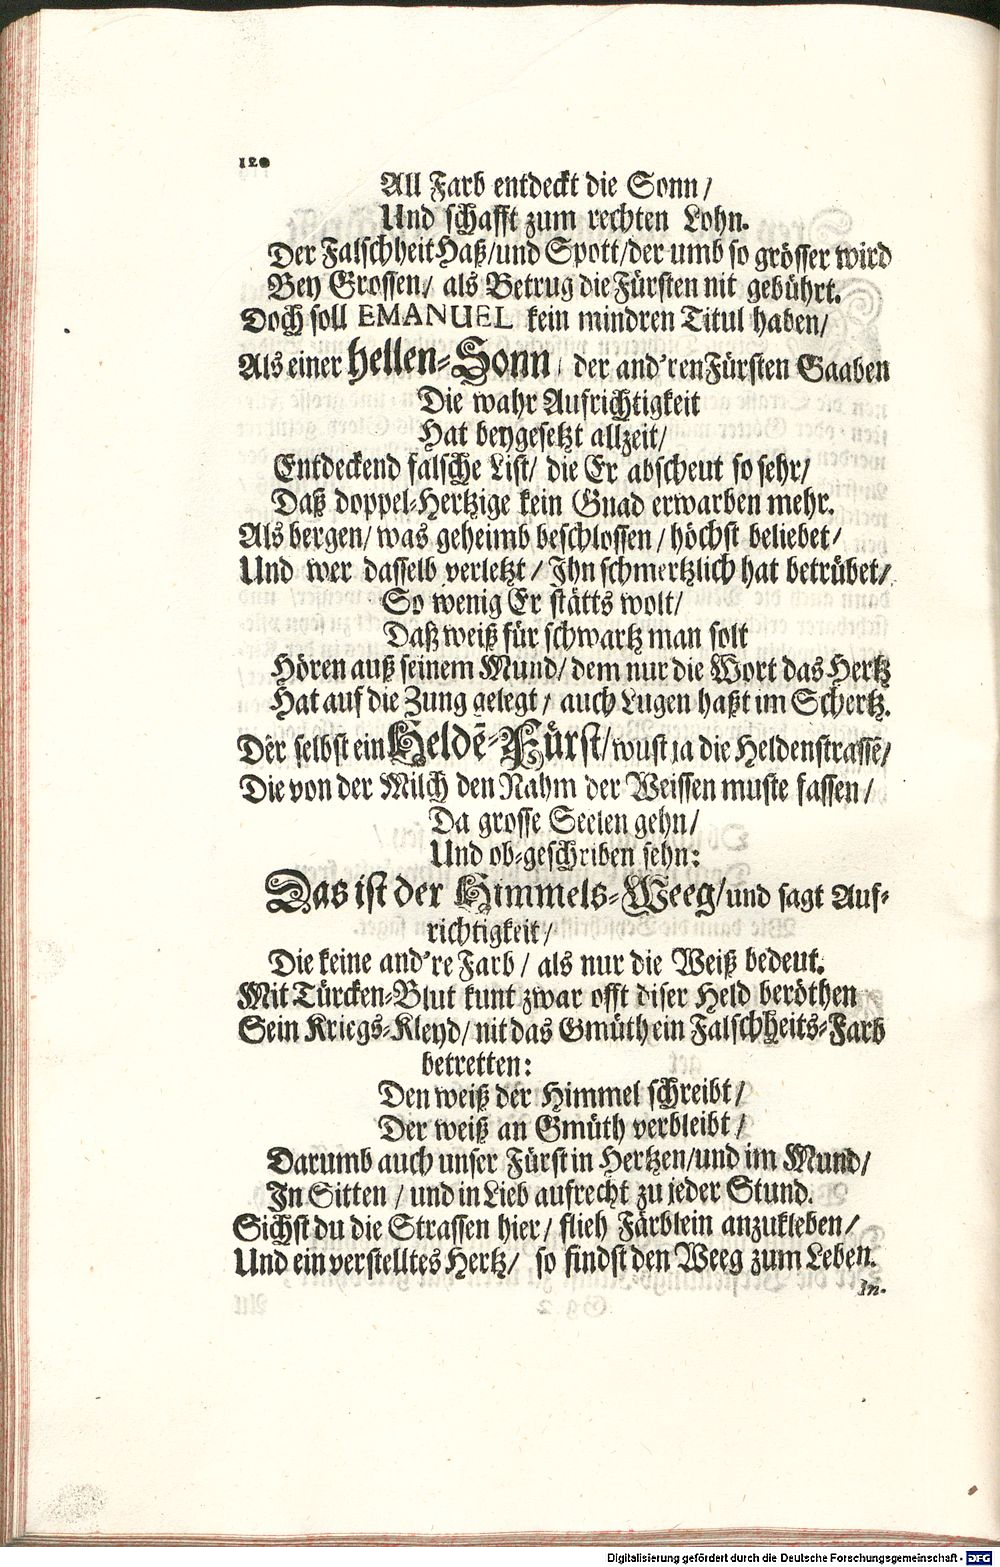 120
All Farb entdeckt die Sonn/
Und schafft zum rechten Lohn.
Der Falschheit Haß/und Spott/der umb so grösser wird
Bey Grossen/ als Betrug die Fürsten nit gebührt.
Doch soll EMANUEL kein mindren Titul haben/
Als einer hellen-Sonn/ der and'ren Fürsten Gaaben
Die wahr Aufrichtigkeit
Hat beygesetzt allzeit/
Entdeckend falsche List/ die Er abscheut so sehr/
Daß doppel-Hertzige kein Gnad erwarben mehr.
Als bergen/ was geheimb beschlossen/ höchst beliebet/
Und wer dasselb verletzt/ Ihn schmertzlich hat betrübet/
So wenig Er stätts wolt/
Daß weiß für schwartz man solt
Hören auß seinem Mund/ dem nur die Wort das Hertz
Hat auf die Zung gelegt/ auch Lugen haßt im Schertz.
Der selbst ein Heldē-Fürst/wust ja die Heldenstrassē/
Die von der Milch den Nahm der Weissen muste fassen/
Da grosse Seelen gehn/
Und ob-geschriben sehn:
Das ist der Himmels-Weeg/und sagt Auf-
richtigkeit/
Die keine and're Farb/ als nur die Weiß bedeut.
Mit Türcken-Blut kunt zwar offt diser Held beröthen
Sein Kriegs-Kleyd/ nit das Gmüth ein Falschheits-Farb
betretten:
Den weiß der Himmel schreibt/
Der weiß an Gmüth verbleibt/
Darumb auch unser Fürst in Hertzen/und im Mund/
In Sitten/ und in Lieb aufrecht zu jeder Stund.
Sichst du die Strassen hier/ flieh Färblein anzukleben/
Und ein verstelltes Hertz/ so findst den Weeg zum Leben.
In-
Digitalisierung gefördert durch die Deutsche Forschungsgemeinschaft - DFG